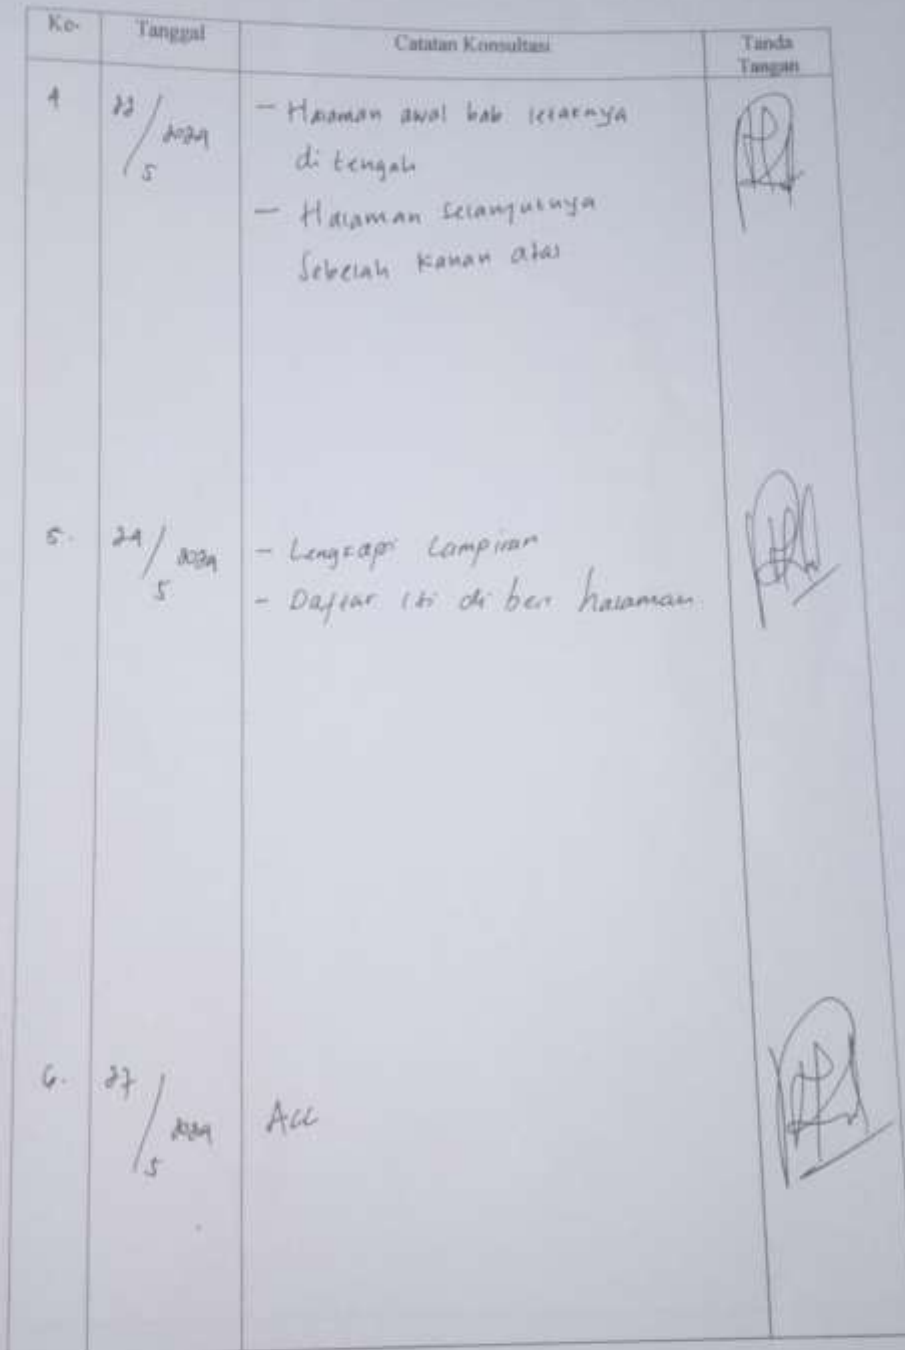 Ke- Tanggal Catatan Konsultasi Tanda Tangan
4 22/5 2024 - Halaman awal bab letaknya
di tengah
- Halaman selanjutnya
Sebelah kanan atas
5. 24/5 2024 - Lengkapi Lampiran
- Daftar isi di beri halaman
6. 27/5 2024 Acc